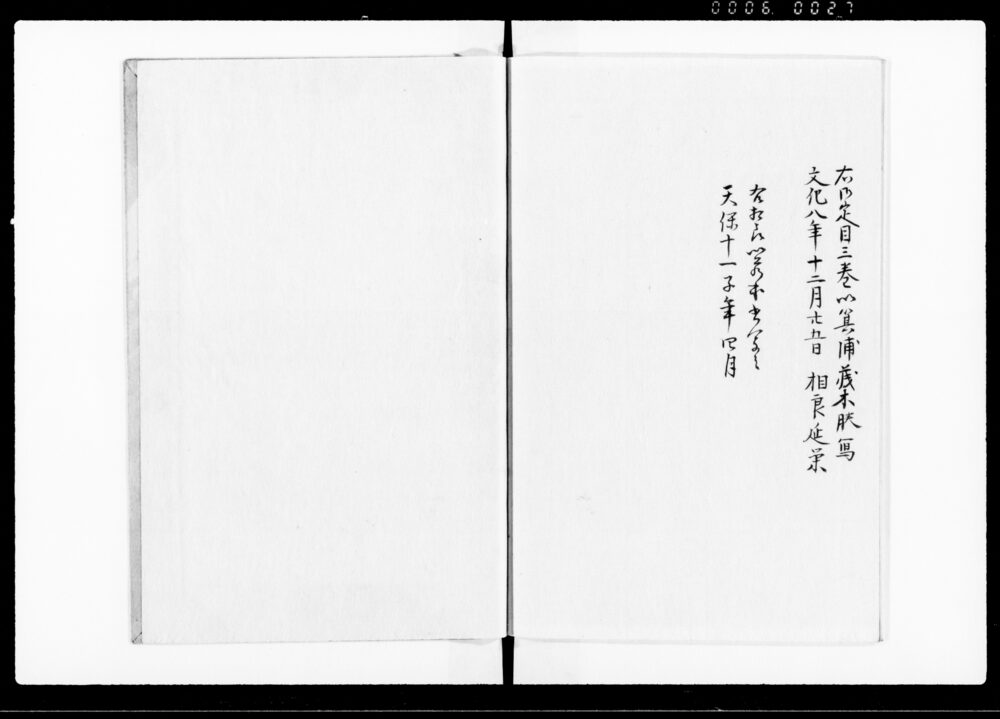 0006. 0027
右御定目三巻以箕浦蔵本謄写
文化八年十二月廿五日 相良延栄
右相良以蔵本書写之
天保十一子年四月